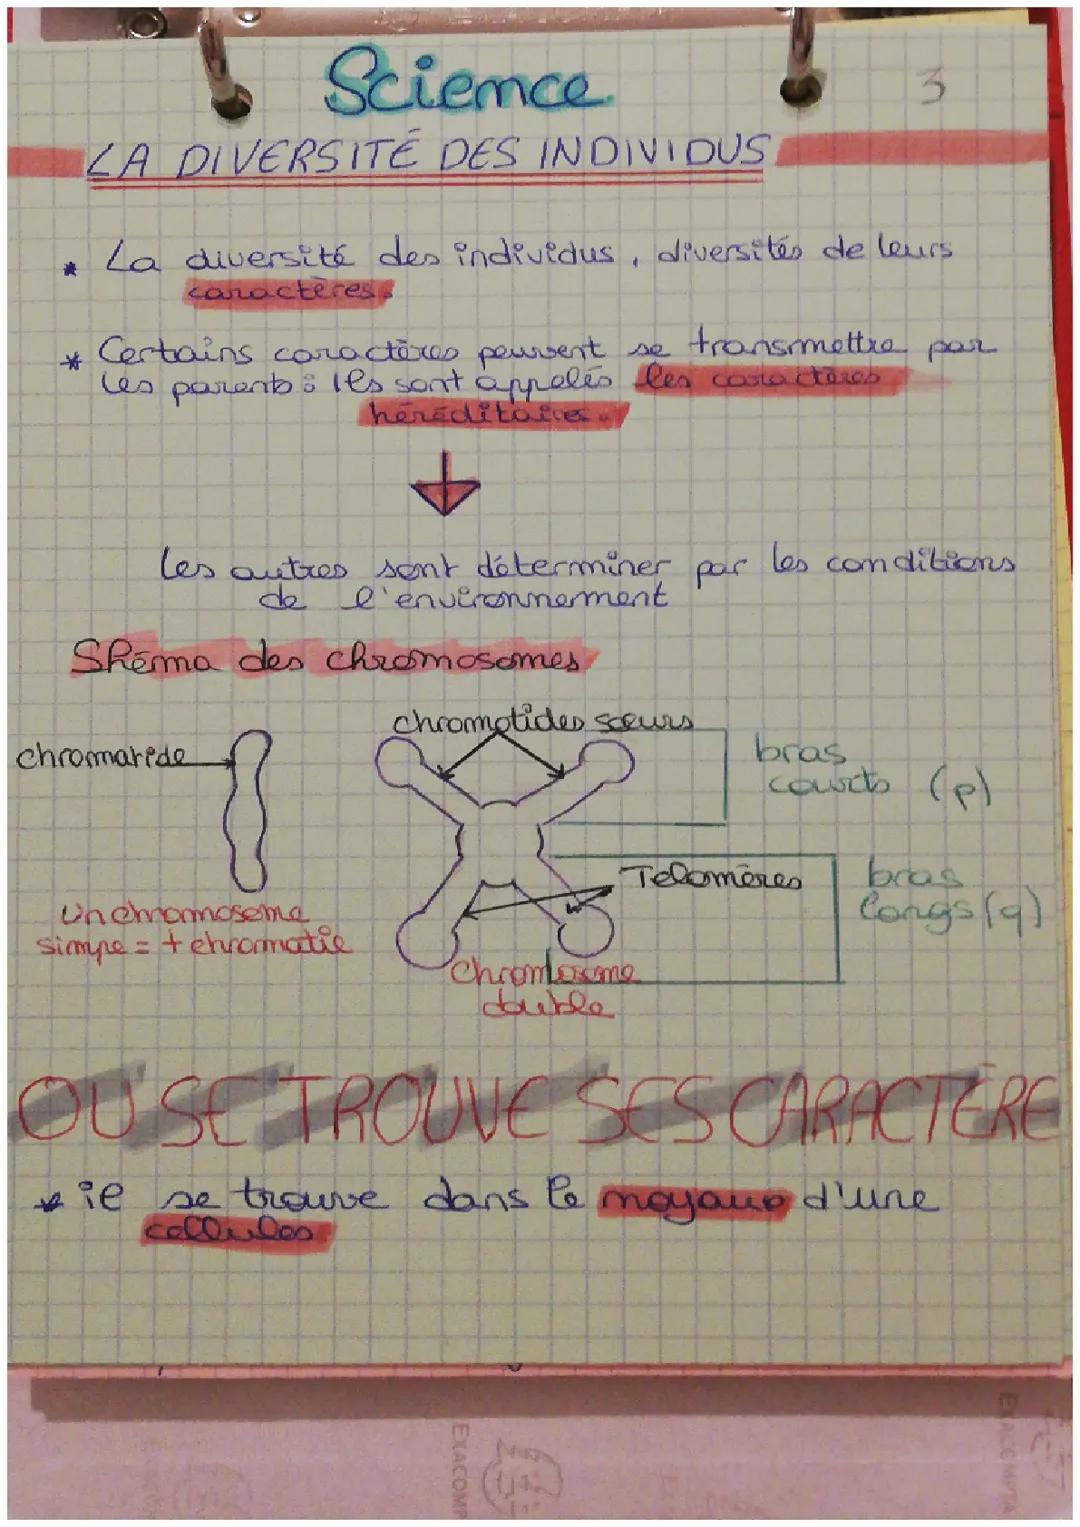 Science
3
LA DIVERSITÉ DES INDIVIDUS
* La diversité des individus, diversités de leurs
caractères.
* Certains caractères peuvent se transmettre par
les parents : ils sont appelés les caractères
héréditaires.
les autres sont déterminer par les conditions
de l'environnement
Shéma des chromosomes
chromatide
chromotides sœurs
bras
courts (p)
Telomères
bras
longs (q)
Un chromosome
simpe = + chromatie
Chromosome
double
OU SE TROUVE SES CARACTÈRE
* il se trouve dans le moyaux d'une
cellules
EXACOMP
EXACOMPTA